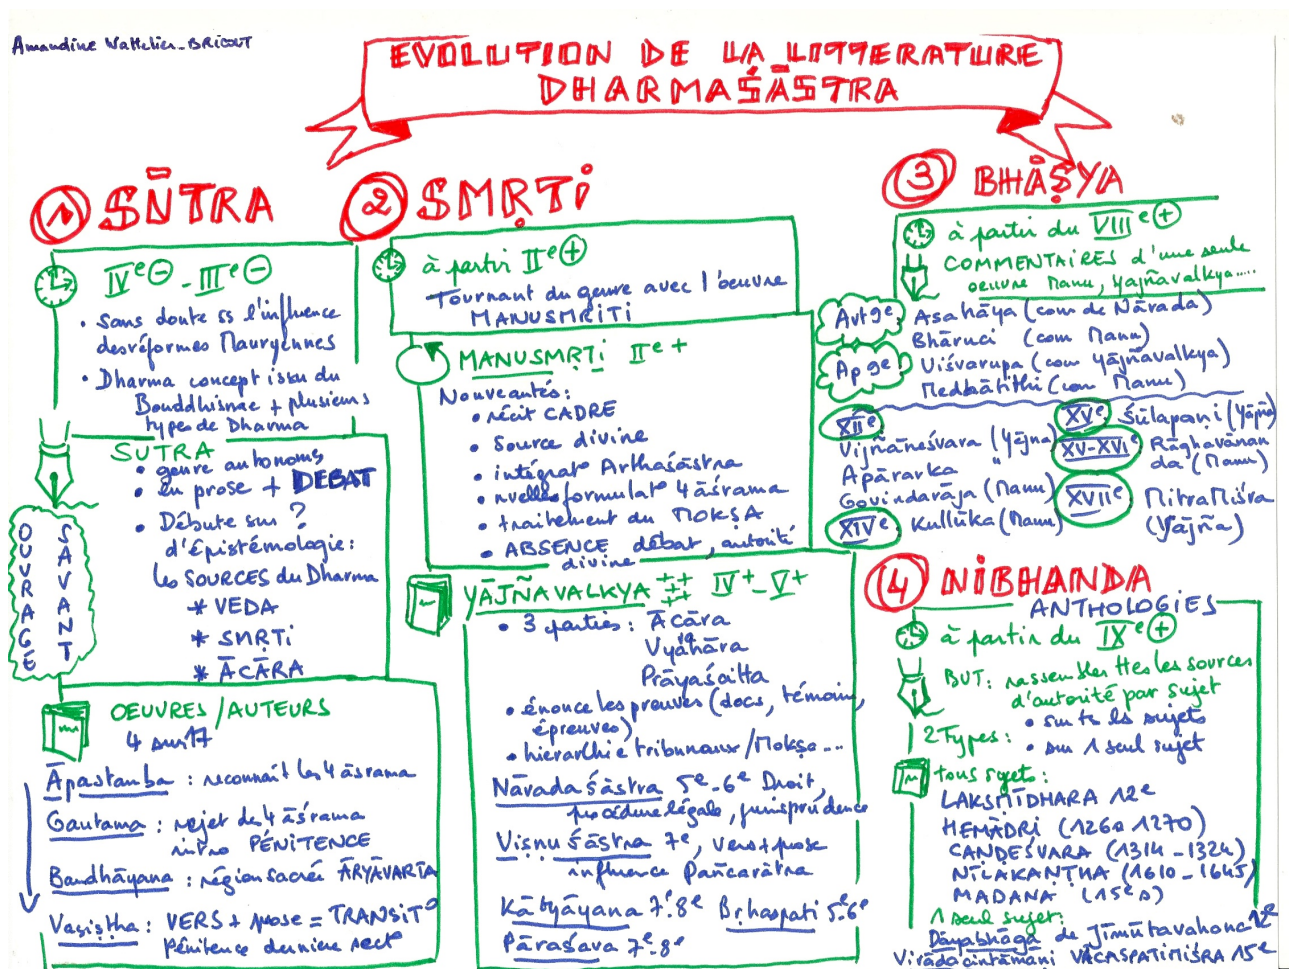 Amandine Wattelier-BRICOUT
EVOLUTION DE LA LITTERATURE
DHARMAŚĀSTRA
1 SŪTRA
IVe⊖ - IIIe⊖
• Sans doute ss l'influence
des réformes Mauryennes
• Dharma concept issu du
Bouddhisme + plusieurs
types de Dharma
SUTRA
• genre autonome
• en prose + DEBAT
• Débute sur ?
d'épistémologie:
les SOURCES du Dharma
* VEDA
* SMṚTi
* ĀCĀRA
OUVRAGE
SAVANT
OEUVRES / AUTEURS
4 sur 17
Āpastamba : reconnait les 4 āsrama
Gautama : rejet des 4 āśrama
intro PÉNITENCE
Baudhāyana : région sacrée ĀRYĀVARTA
Vasiṣṭha : VERS + prose = TRANSIT°
Pénitence derniere sect°
2 SMṚTi
à partir IIe⊕
Tournant du genre avec l'oeuvre
MANUSMRITI
MANUSMṚTi IIe+
Nouveautés:
• récit CADRE
• source divine
• intégrat° Arthaśāstra
• nvelle formulat° 4 āśrama
• traitement du MOKṢA
• ABSENCE débat, autorité
divine
YĀJÑAVALKYA ++ ++ IV+ - V+
• 3 parties : Ācāra
Vyāhāra
Prāyaścitta
• énonce les preuves (docs, témoins,
épreuves)
• hierarchie tribunaux / Mokṣa ...
Nārada śāstra 5e-6e Droit,
procédure légale, jurisprudence
Viṣṇu śāstra 7e, vers + prose
influence Pañcarātra
Kātyāyana 7e-8e Bṛhaspati 5e-6e
Pāraśava 7e-8e
3 BHĀṢYA
à partir du VIIIe⊕
COMMENTAIRES d'une seule
oeuvre Manu, Yajñavalkya.....
Avt 9e
Asahāya (com de Nārada)
Bhāruci (com Manu)
Ap 9e
Viśvarupa (com Yājñavalkya)
Medhātithi (com Manu)
XIIe
Vijñāneśvara (Yājna)
Apārarka "
Govindarāja (Manu)
XIVe Kullūka (Manu)
XVe Śūlapaṇi (Yājña)
XV-XVIe Rāghavānan
da (Manu)
XVIIe MitraMiśra
(Yājña)
4 NiBHANDA
ANTHOLOGIES
à partir du IXe⊕
BUT: rassembler ttes les sources
d'autorité par sujet
2 Types: • sur ts les sujets
• sur 1 seul sujet
tous sujets:
LAKSMĪDHARA 12e
HEMĀDRi (1260 1270)
CANDEŚVARA (1314-1324)
NĪLAKAṆṬHA (1610-1645)
MADANA (15e)
1 seul sujet:
Dāyabhāga de Jīmūtavahana 12e
Virādacintāmāni VĀCASPATIMIŚRA 15e